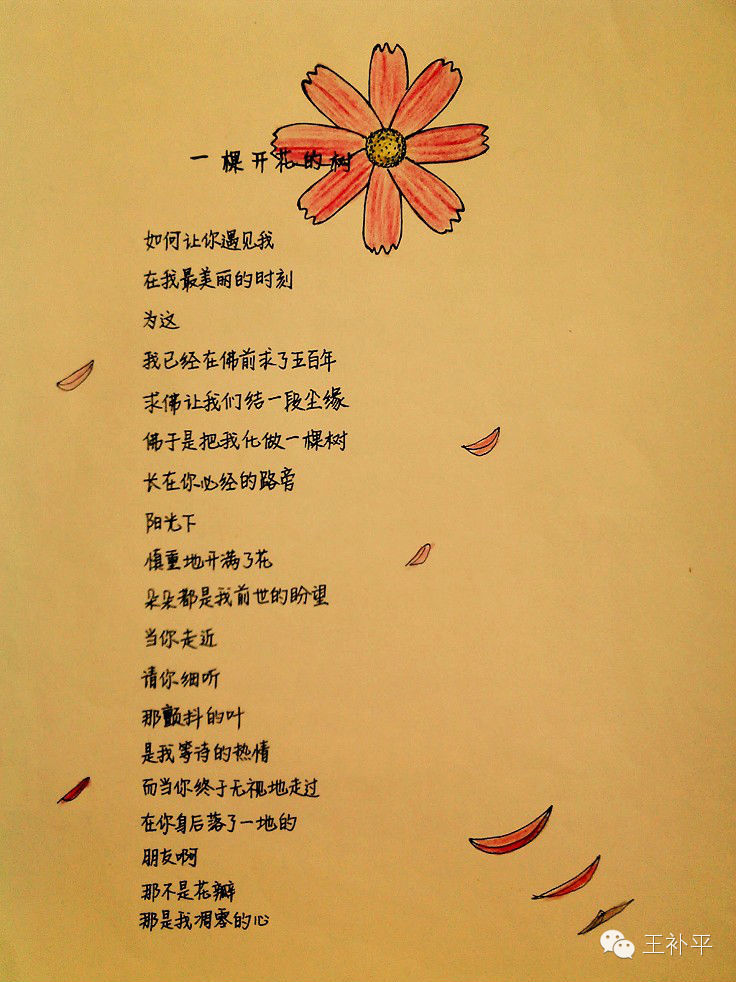 一棵开花的树
如何让你遇见我
在我最美丽的时刻
为这
我已经在佛前求了五百年
求佛让我们结一段尘缘
佛于是把我化做一棵树
长在你必经的路旁
阳光下
慎重地开满了花
朵朵都是我前世的盼望
当你走近
请你细听
那颤抖的叶
是我等待的热情
而当你终于无视地走过
在你身后落了一地的
朋友啊
那不是花瓣
那是我凋零的心
王补平